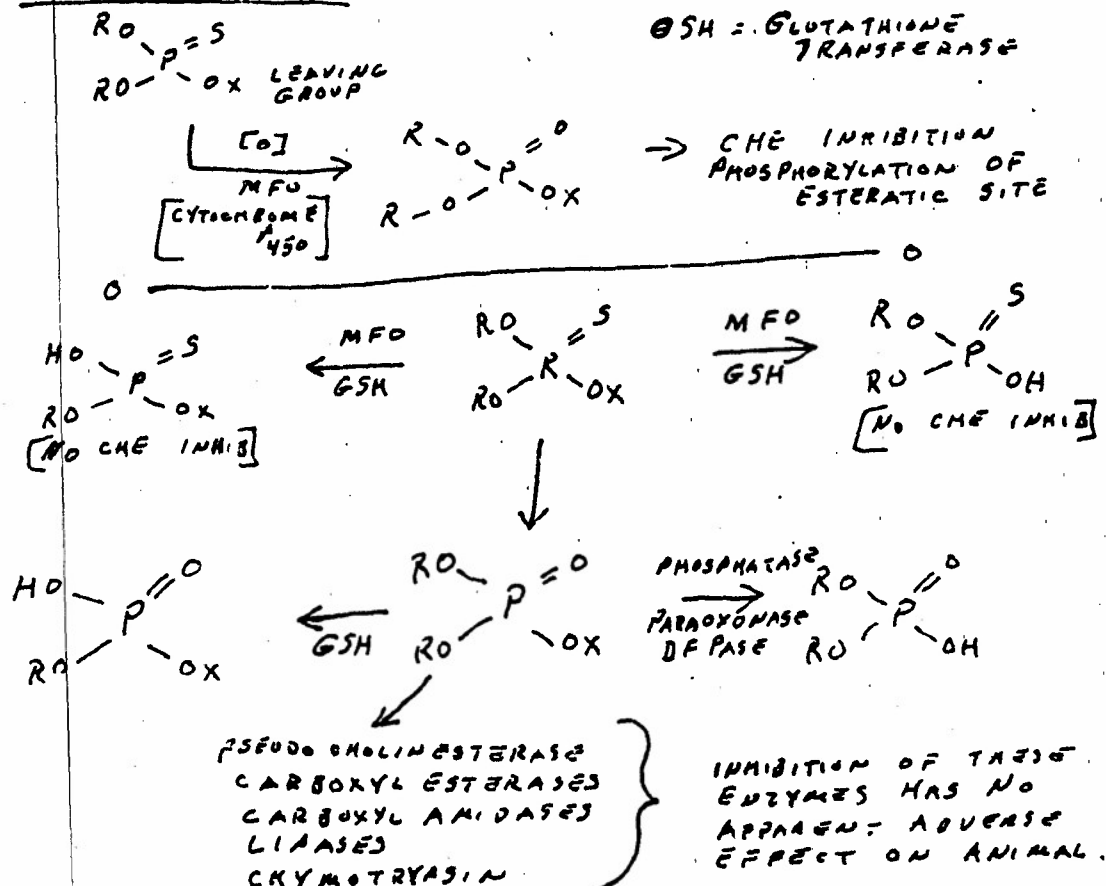 RO S
P
RO OX LEAVING
GROUP
GSH = GLUTATHIONE
TRANSFERASE
[O]
MFO
[CYTOCHROME
P450]
R O O
P
R O OX
→ CHE INHIBITION
PHOSPHORYLATION OF
ESTERATIC SITE
O O
HO S
P
RO OX
[NO CHE INHIB]
MFO
GSH
RO S
R
RO OX
MFO
GSH
RO S
P
RO OH
[NO CHE INHIB]
HO O
P
RO OX
GSH
RO O
P
RO OX
PHOSPHATASE
PARAOXONASE
DFPASE
RO O
P
RO OH
PSEUDO CHOLINESTERASE
CARBOXYL ESTERASES
CARBOXYL AMIDASES
LIPASES
CHYMOTRYPSIN
INHIBITION OF THESE
ENZYMES HAS NO
APPARENT ADVERSE
EFFECT ON ANIMAL.